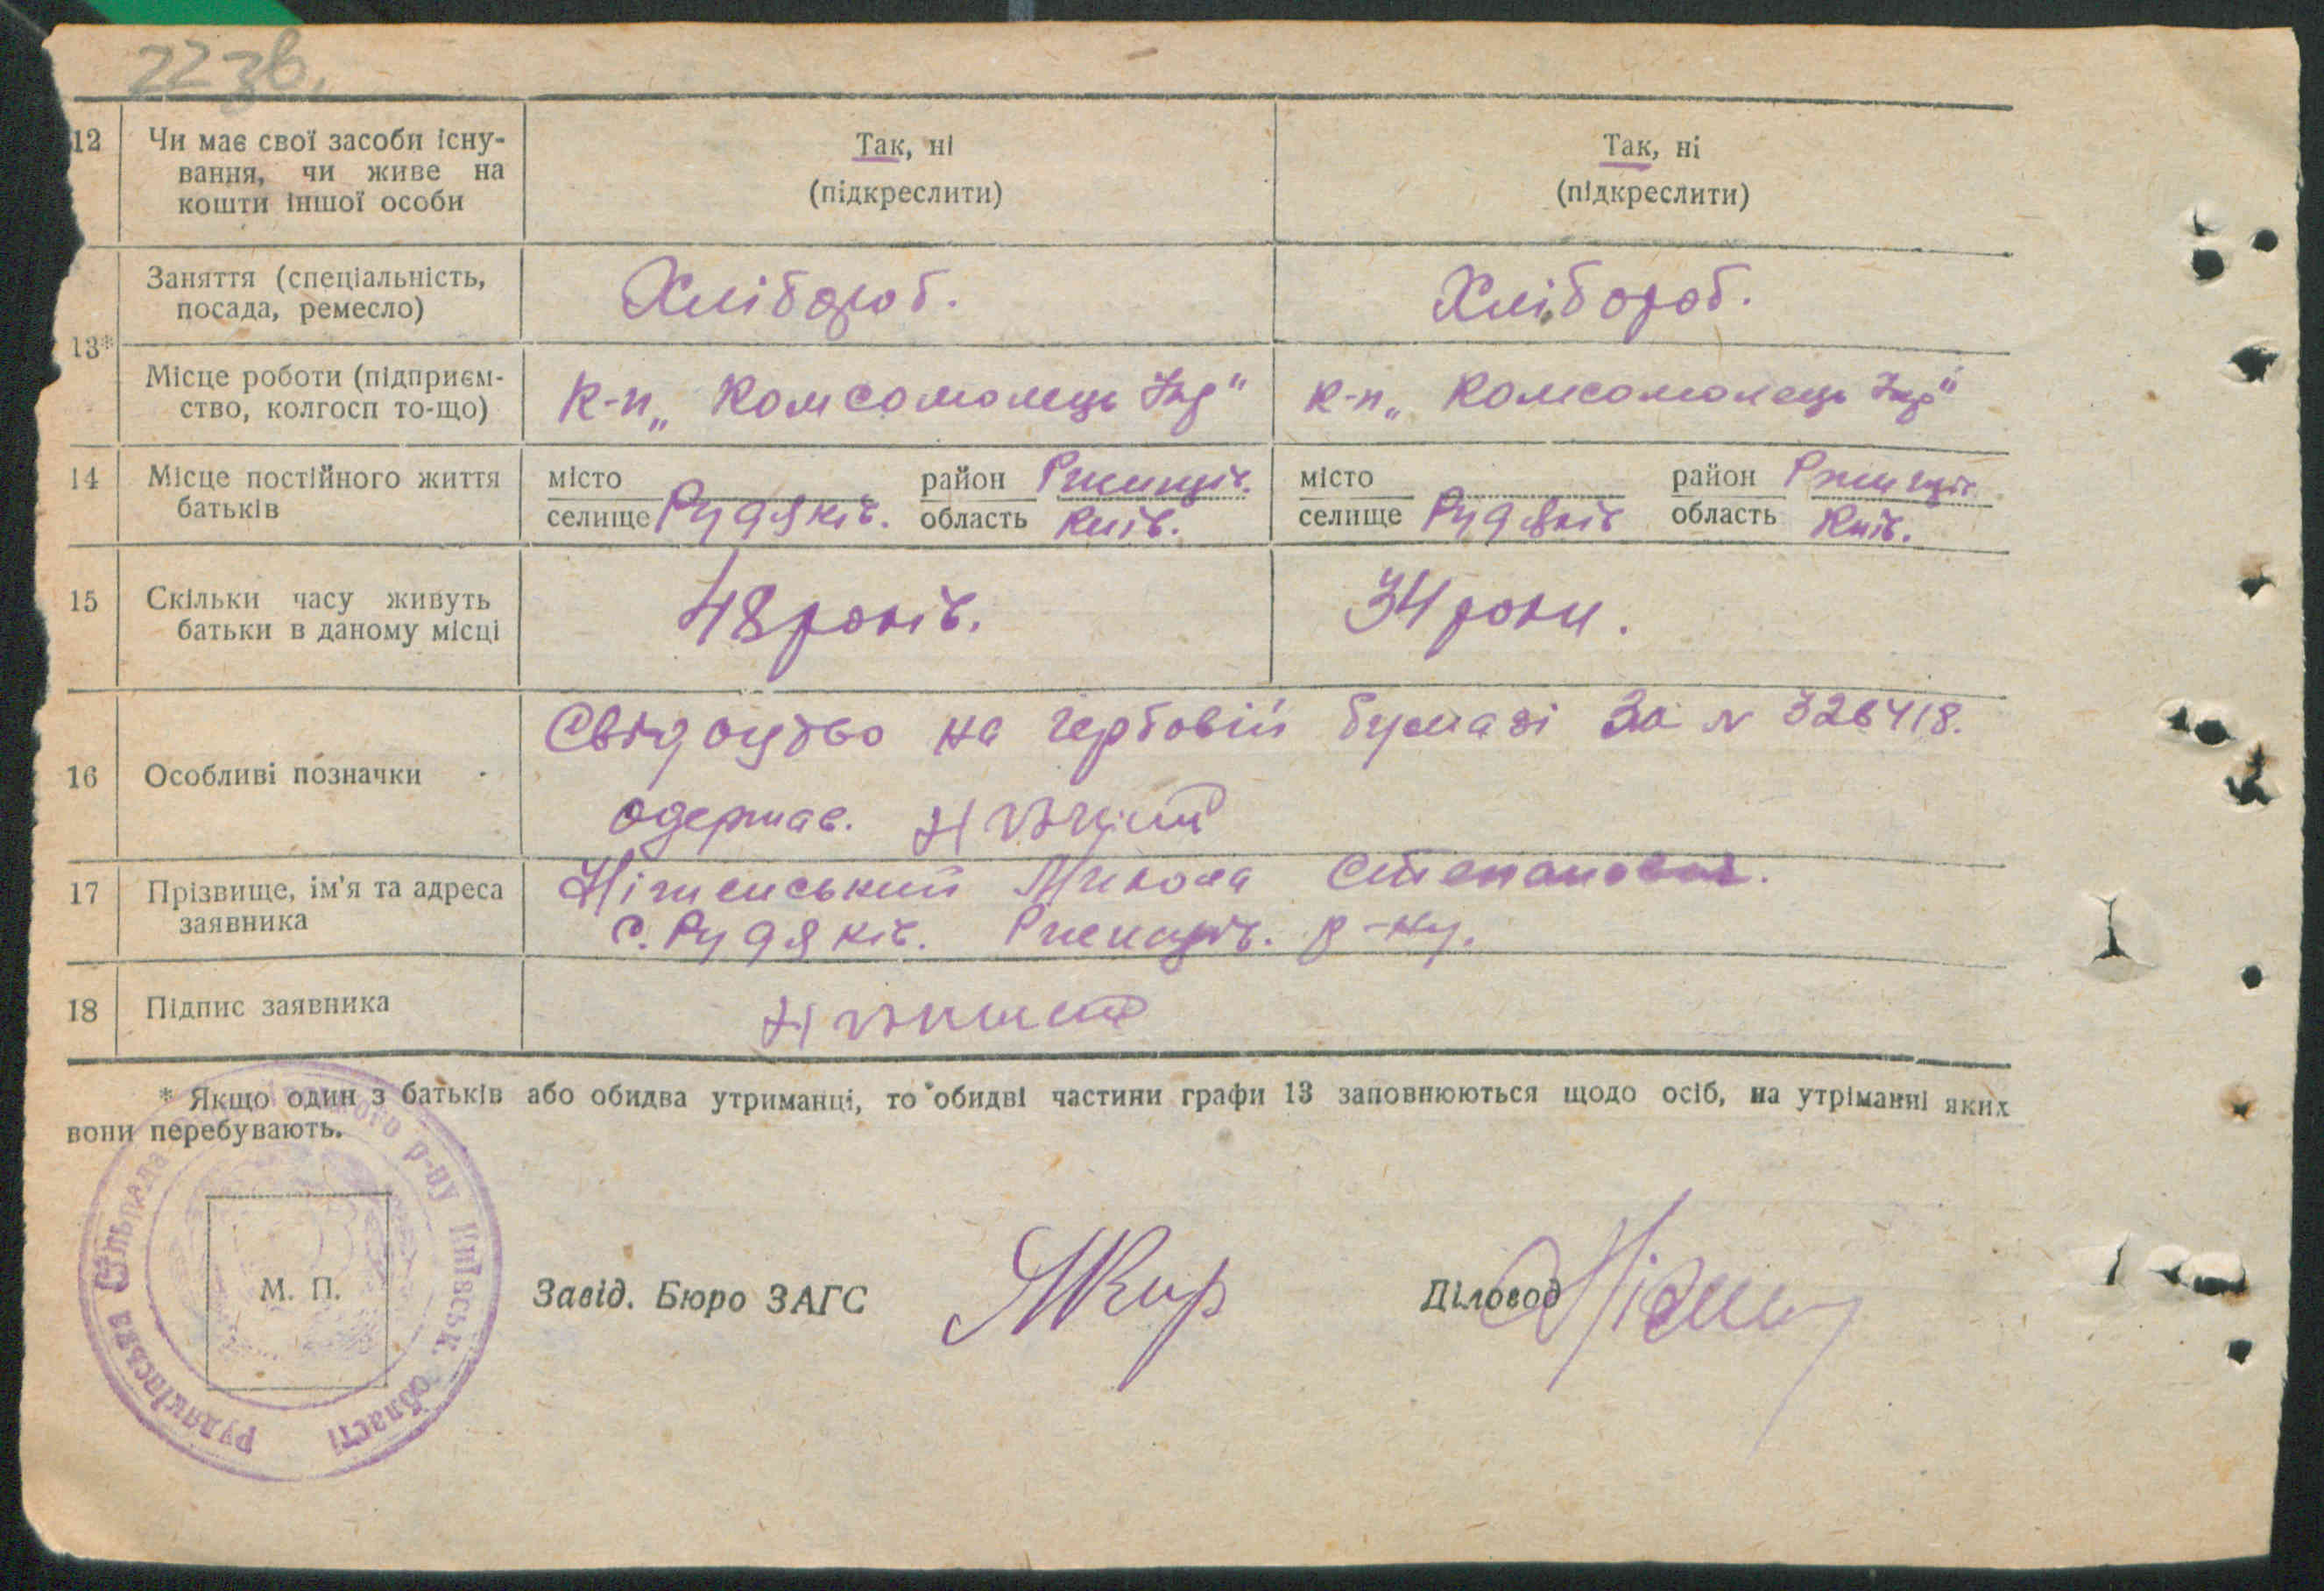 22 зв.
12 Чи має свої засоби існу- Так, ні Так, ні
вання, чи живе на (підкреслити) (підкреслити)
кошти іншої особи
Заняття (спеціальність, Хлібороб. Хлібороб.
посада, ремесло)
13*
Місце роботи (підприєм- к-п „Комсомолець Укр" к-п „Комсомолець Укр"
ство, колгосп то-що)
14 Місце постійного життя місто район Ржищів. місто район Ржищів
батьків селище Рудяків. область Київ. селище Рудяків область Київ.
15 Скільки часу живуть 48 років. 34 роки.
батьки в даному місці
Свідоцтво на гербовій бумазі за № 326418.
16 Особливі позначки
одержав.
17 Прізвище, ім'я та адреса Ніженський Микола Степанович.
заявника с. Рудяків. Ржищів. р-ну.
18 Підпис заявника
* Якщо один з батьків або обидва утриманці, то обидві частини графи 13 заповнюються щодо осіб, на утріманні яких
вони перебувають.
Рудяківська Сільрада р-ну Київськ. області
М. П.
Завід. Бюро ЗАГС Діловод